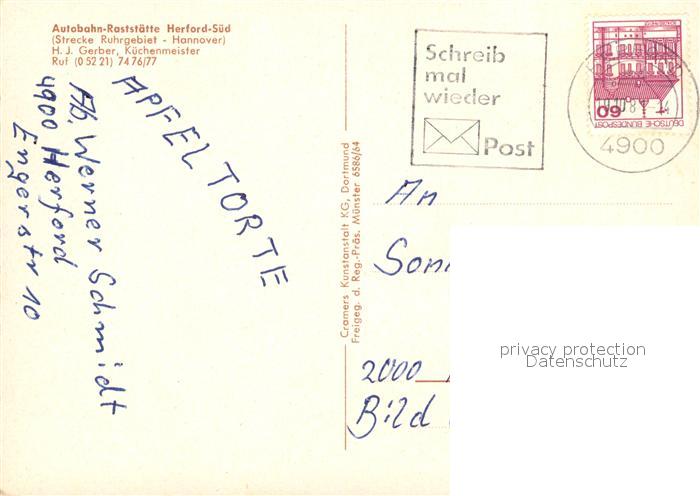 Autobahn-Raststätte Herford-Süd
(Strecke Ruhrgebiet - Hannover)
H. J. Gerber, Küchenmeister
Ruf (0 52 21) 74 76/77
APFELTORTE
Ab. Werner Schmidt
4900 Herford
Engerstr 10
Cramers Kunstanstalt KG, Dortmund
Freigeg. d. Reg.-Präs. Münster 6586/64
Schreib
mal
wieder
Post
60
DEUTSCHE BUNDESPOST
4900
An
Son
2000
Bild
privacy protection
Datenschutz